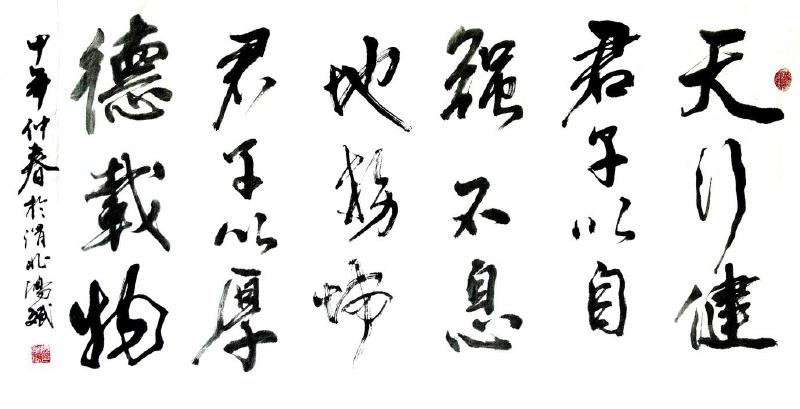 天行健
君子以自
强不息
地勢坤
君子以厚
德載物
甲午仲春於渭北